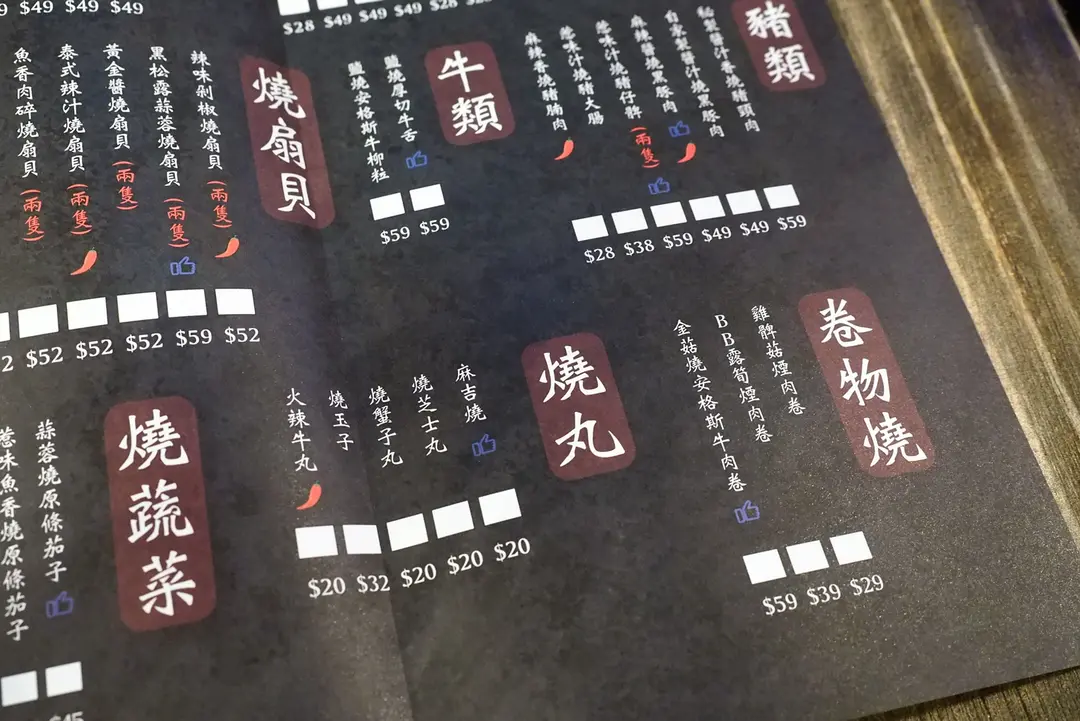 $49 $49 $49
$28 $49 $49 $49 $28
豬類
秘製醬汁串燒豬頸肉
自家製醬汁燒黑豚肉
麻辣醬燒黑豚肉
惹味汁燒豬仔髀(兩隻)
惹味汁燒豬大腸
麻辣香燒豬腩肉
$28 $38 $59 $49 $49 $59
牛類
鹽燒厚切牛舌
鹽燒安格斯牛柳粒
$59 $59
燒扇貝
辣味剁椒燒扇貝(兩隻)
黑松露蒜蓉燒扇貝(兩隻)
黃金醬燒扇貝(兩隻)
泰式辣汁燒扇貝(兩隻)
魚香肉碎燒扇貝(兩隻)
$52 $52 $52 $59 $52
卷物燒
雞髀菇煙肉卷
BB露筍煙肉卷
金菇燒安格斯牛肉卷
$59 $39 $29
燒丸
麻吉燒
燒芝士丸
燒蟹子丸
燒玉子
火辣牛丸
$20 $32 $20 $20 $20
燒蔬菜
蒜蓉燒原條茄子
惹味魚香燒原條茄子